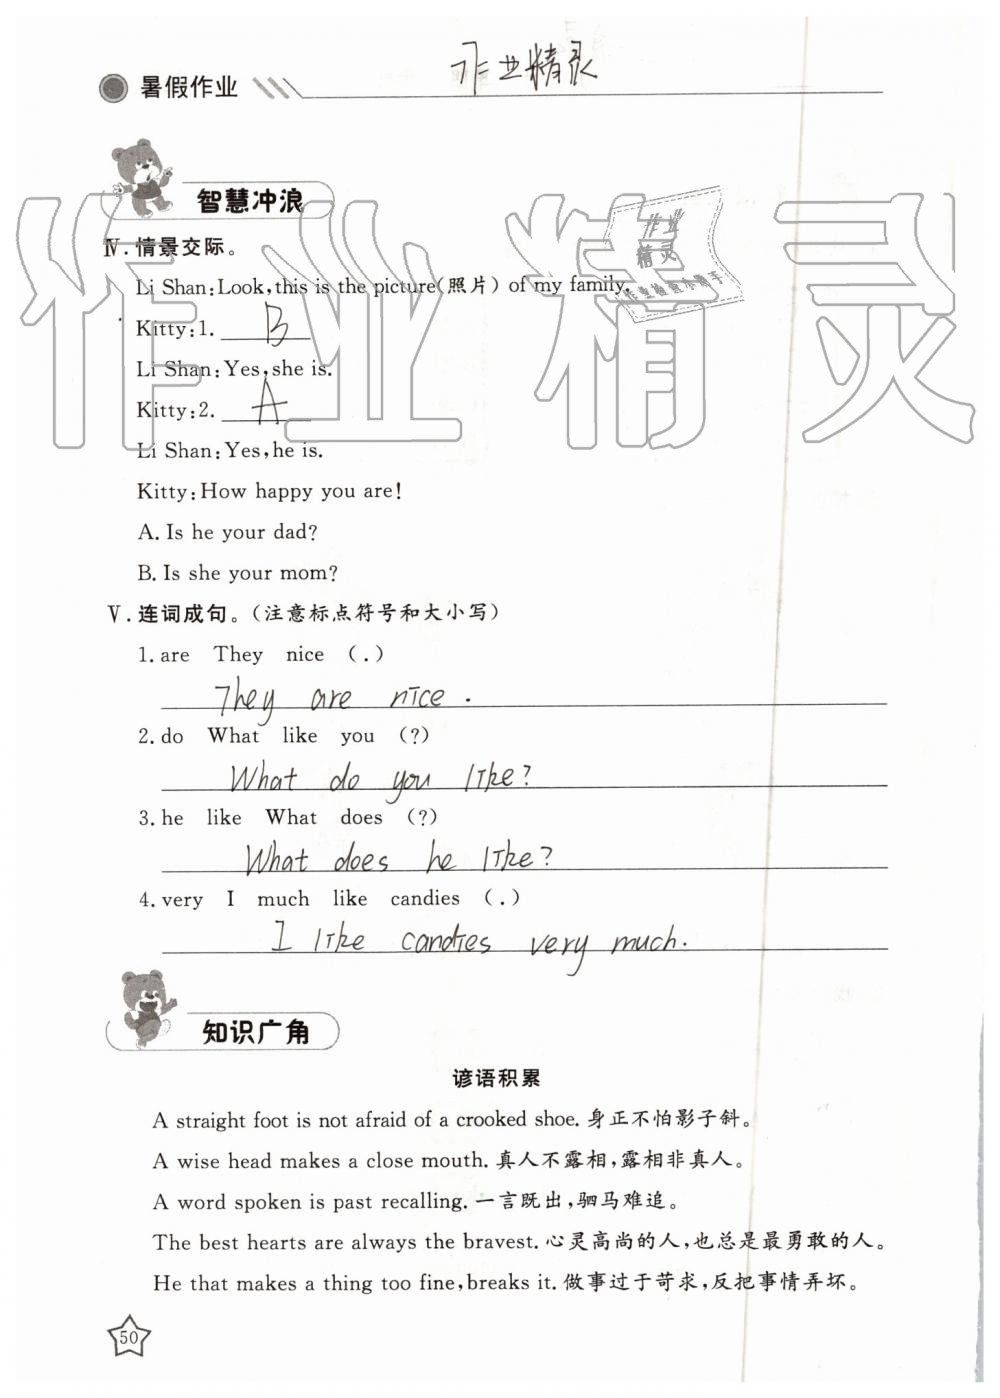 作业精灵
暑假作业
智慧冲浪
作业精灵
作业
精灵
Ⅳ.情景交际。
Li Shan:Look,this is the picture(照片) of my family.
Kitty:1. B
Li Shan:Yes,she is.
Kitty:2. A
Li Shan:Yes,he is.
Kitty:How happy you are!
A. Is he your dad?
B. Is she your mom?
Ⅴ.连词成句。(注意标点符号和大小写)
1. are They nice (.)
They are nice.
2. do What like you (?)
What do you like?
3. he like What does (?)
What does he like?
4. very I much like candies (.)
I like candies very much.
知识广角
谚语积累
A straight foot is not afraid of a crooked shoe. 身正不怕影子斜。
A wise head makes a close mouth. 真人不露相,露相非真人。
A word spoken is past recalling. 一言既出,驷马难追。
The best hearts are always the bravest. 心灵高尚的人,也总是最勇敢的人。
He that makes a thing too fine,breaks it. 做事过于苛求,反把事情弄坏。
50